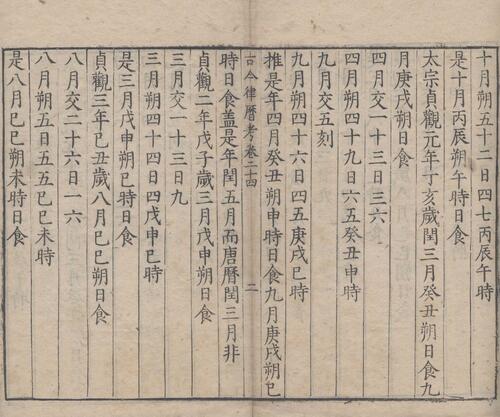 十月朔五十二日四七丙辰午時
是十月丙辰朔午時日食
太宗貞觀元年丁亥歲閏三月癸丑朔日食九
月庚戌朔日食
四月交一十三日三六
四月朔四十九日六五癸丑申時
九月交五刻
九月朔四十六日四五庚戌巳時
推是年四月癸丑朔申時日食九月庚戌朔巳
古今律曆考卷二十四
二
時日食蓋是年閏五月而唐曆閏三月非
貞觀二年戊子歲三月戊申朔日食
三月交一十三日九
三月朔四十四日四戊申巳時
是三月戊申朔巳時日食
貞觀三年己丑歲八月己巳朔日食
八月交二十六日一六
八月朔五日五五己巳未時
是八月己巳朔未時日食